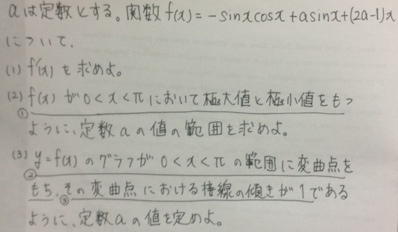 aは定数とする。関数f(x)=-sinxcosx+asinx+(2a-1)x
について、
(1) f'(x)を求めよ。
(2) f(x)が0<x<πにおいて極大値と極小値をもつ
①
ように、定数aの値の範囲を求めよ。
(3) y=f(x)のグラフが0<x<πの範囲に変曲点を
②
もち、その変曲点における接線の傾きが1である
③
ように、定数aの値を定めよ。